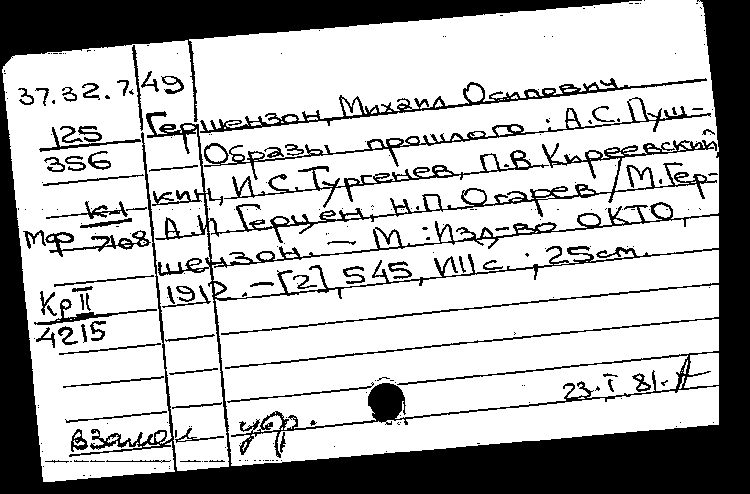 37.32.7.49
125
356
Гершензон, Михаил Осипович.
Образы прошлого : А.С. Пуш-
кин, И.С. Тургенев, П.В. Киреевский,
А.И. Герцен, Н.П. Огарев / М. Гер-
шензон. – М. : Изд-во ОКТО,
1912. – [2], 545, VIII с. ; 25 см.
Мф К-1
7408
Кр II
4215
23.I.81.
взамен убр.